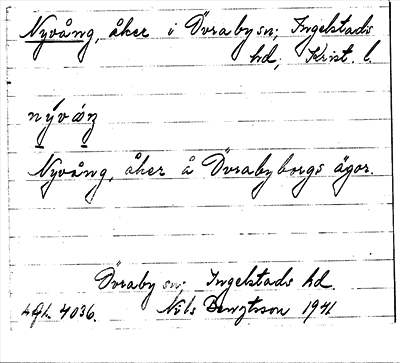 Nyvång, åker i Övraby sn; Ingelstads
hd; Krist. l.
Nyvång, åker å Övrabyborgs ägor.
Övraby sn; Ingelstads hd.
4036. Nils Bengtsson 1941